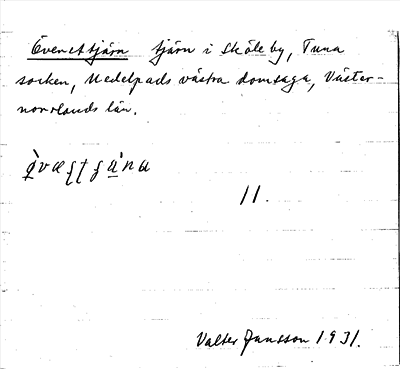 Övenettjärn tjärn i Sköleby, Tuna
socken, Medelpads västra domsaga, Väster-
norrlands län.
11.
Valter Jansson 1931.